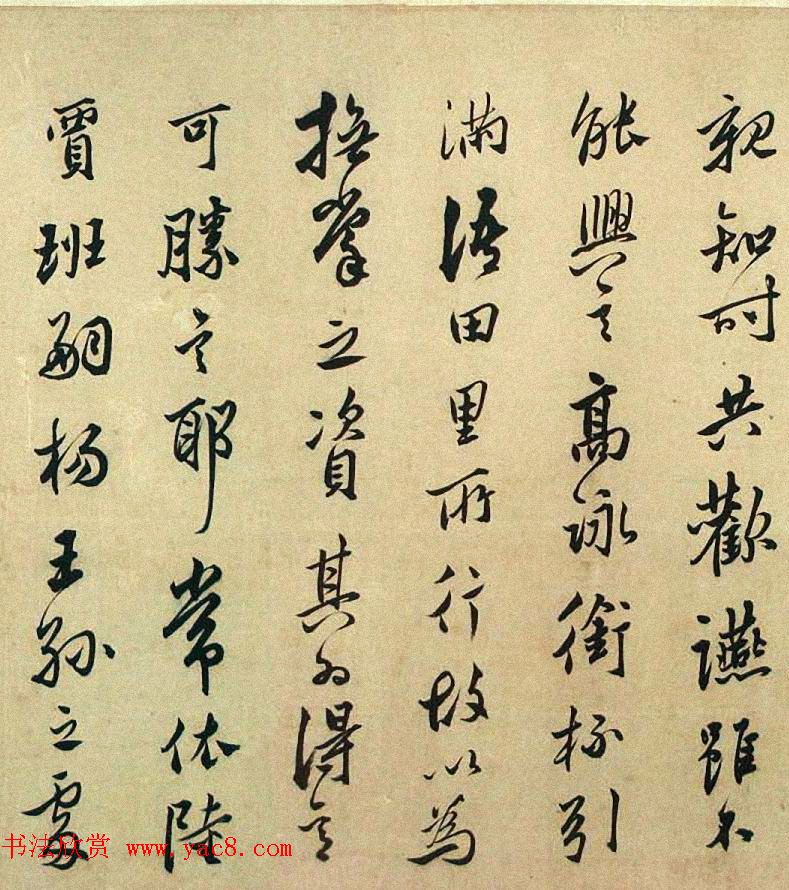 親知時共歡讌雖不
能興言高詠銜杯引
滿語田里所行故以為
撫掌之資其為得意
可勝言耶常依陸
賈班嗣楊王孫之處
书法欣赏 www.yac8.com